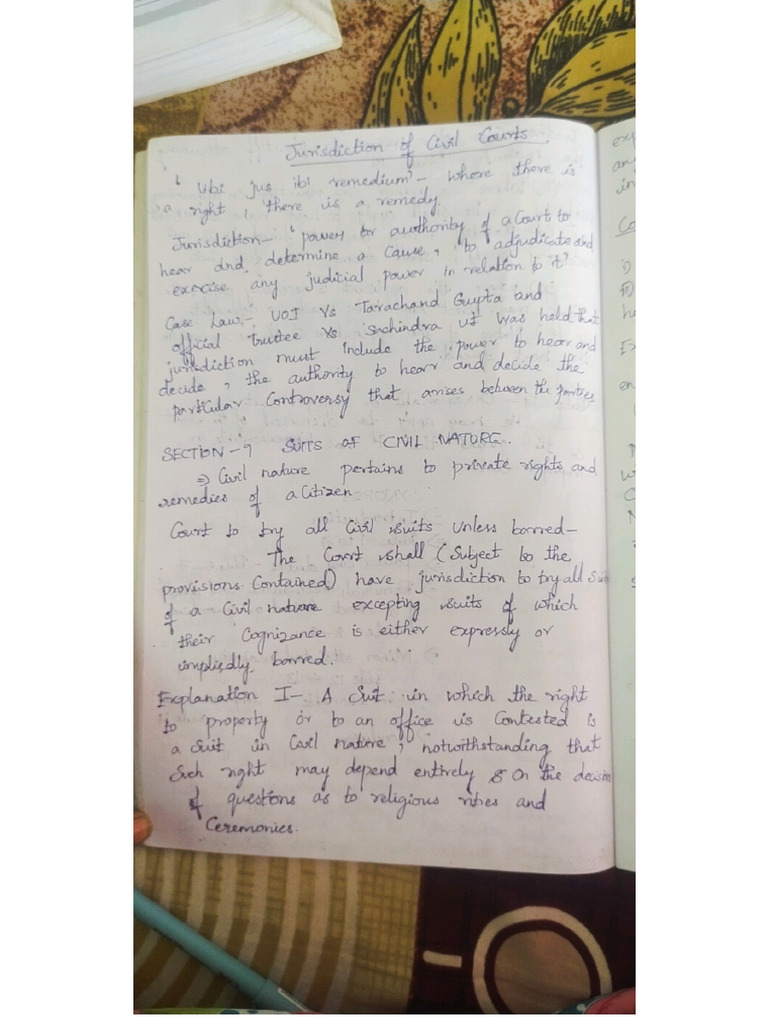 Jurisdiction of Civil Courts
'Ubi jus ibi remedium' - where there is
a right, there is a remedy.
Jurisdiction - 'power or authority of a Court to
hear and determine a cause, to adjudicate and
exercise any judicial power in relation to it'
Case Law:- UOI Vs Tarachand Gupta and
official trustee Vs Sachindra it was held that
jurisdiction must include the power to hear and
decide, the authority to hear and decide the
particular Controversy that arises between the parties
SECTION-9 SUITS OF CIVIL NATURE.
⇒ Civil nature pertains to private rights and
remedies of a Citizen
Court to try all Civil suits unless barred-
The Court shall (Subject to the
provisions Contained) have jurisdiction to try all
of a Civil nature excepting suits of which
their Cognizance is either expressly or
impliedly barred.
Explanation I- A Suit in which the right
to property or to an office is Contested is
a suit in Civil nature, notwithstanding that
such right may depend entirely on the decision
of questions as to religious rites and
Ceremonies.